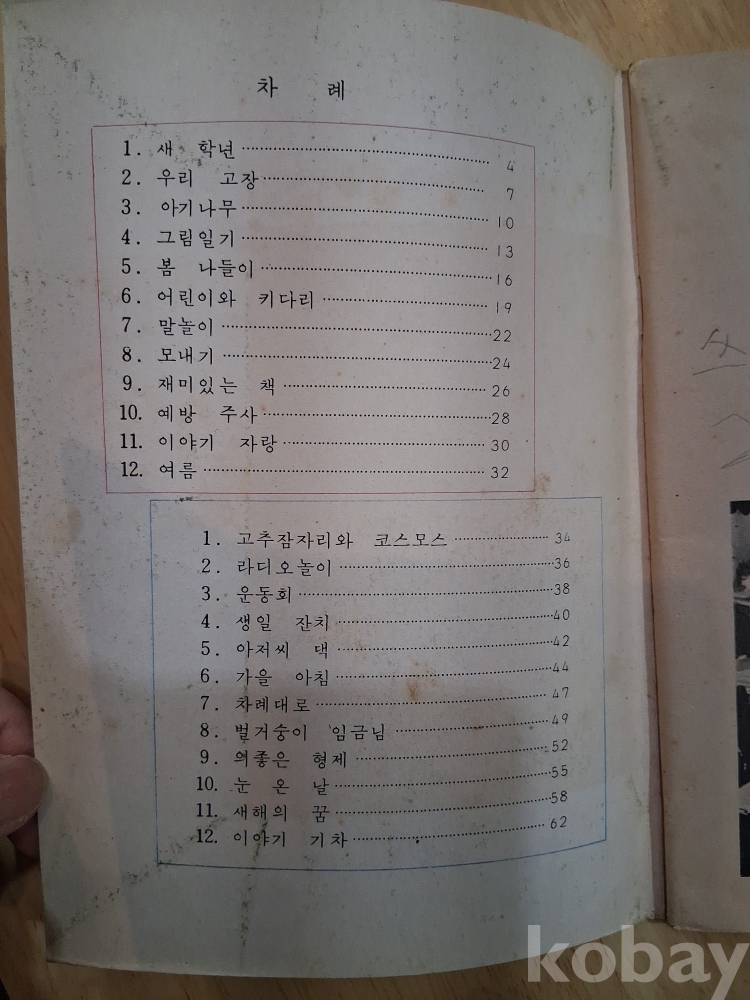 차 례
1. 새 학년 4
2. 우리 고장 7
3. 아기나무 10
4. 그림일기 13
5. 봄 나들이 16
6. 어린이와 키다리 19
7. 말놀이 22
8. 모내기 24
9. 재미있는 책 26
10. 예방 주사 28
11. 이야기 자랑 30
12. 여름 32
1. 고추잠자리와 코스모스 34
2. 라디오놀이 36
3. 운동회 38
4. 생일 잔치 40
5. 아저씨 댁 42
6. 가을 아침 44
7. 차례대로 47
8. 벌거숭이 임금님 49
9. 의좋은 형제 52
10. 눈 온 날 55
11. 새해의 꿈 58
12. 이야기 기차 62
kobay